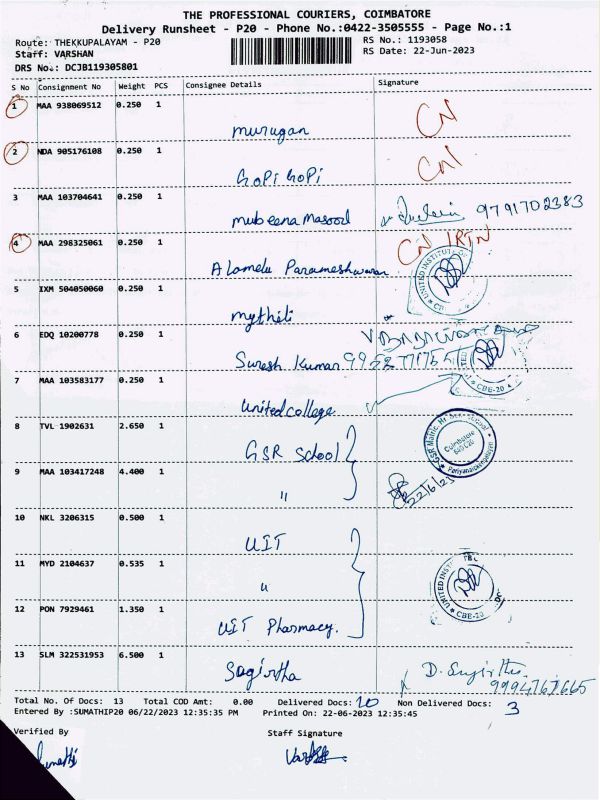 THE PROFESSIONAL COURIERS, COIMBATORE
Delivery Runsheet - P20 - Phone No.:0422-3505555 - Page No.:1
Route: THEKKUPALAYAM - P20 RS No.: 1193058
Staff: VARSHAN RS Date: 22-Jun-2023
DRS No.: DCJB119305801
S No Consignment No Weight PCS Consignee Details Signature
1 MAA 938069512 0.250 1 CN
Murugan
2 NDA 905176108 0.250 1 CN
GOPi GOPi
3 MAA 103704641 0.250 1
mubeena masood 9791702383
4 MAA 298325061 0.250 1 CN IRTN
Alamelu Parameshwaran
UNITED INSTITUTE OF
5 IXM 504050060 0.250 1
mythili
6 EDQ 10200778 0.250 1
Suresh Kumar
7 MAA 103583177 0.250 1 CBE-20
United college
8 TVL 1902631 2.650 1
GSR School
GSR Matric. Hr. Sec. School
Coimbatore
Periyanaickenpalayam
9 MAA 103417248 4.400 1
" 22/6/23
10 NKL 3206315 0.500 1
UIT
11 MYD 2104637 0.535 1
"
UNITED INSTITUTE
CBE-20
12 PON 7929461 1.350 1
UIT Pharmacy.
13 SLM 322531953 6.500 1
Sugirtha D. Sugirtha
9994767665
Total No. Of Docs: 13 Total COD Amt: 0.00 Delivered Docs: 10 Non Delivered Docs: 3
Entered By :SUMATHIP20 06/22/2023 12:35:35 PM Printed On: 22-06-2023 12:35:45
Verified By Staff Signature